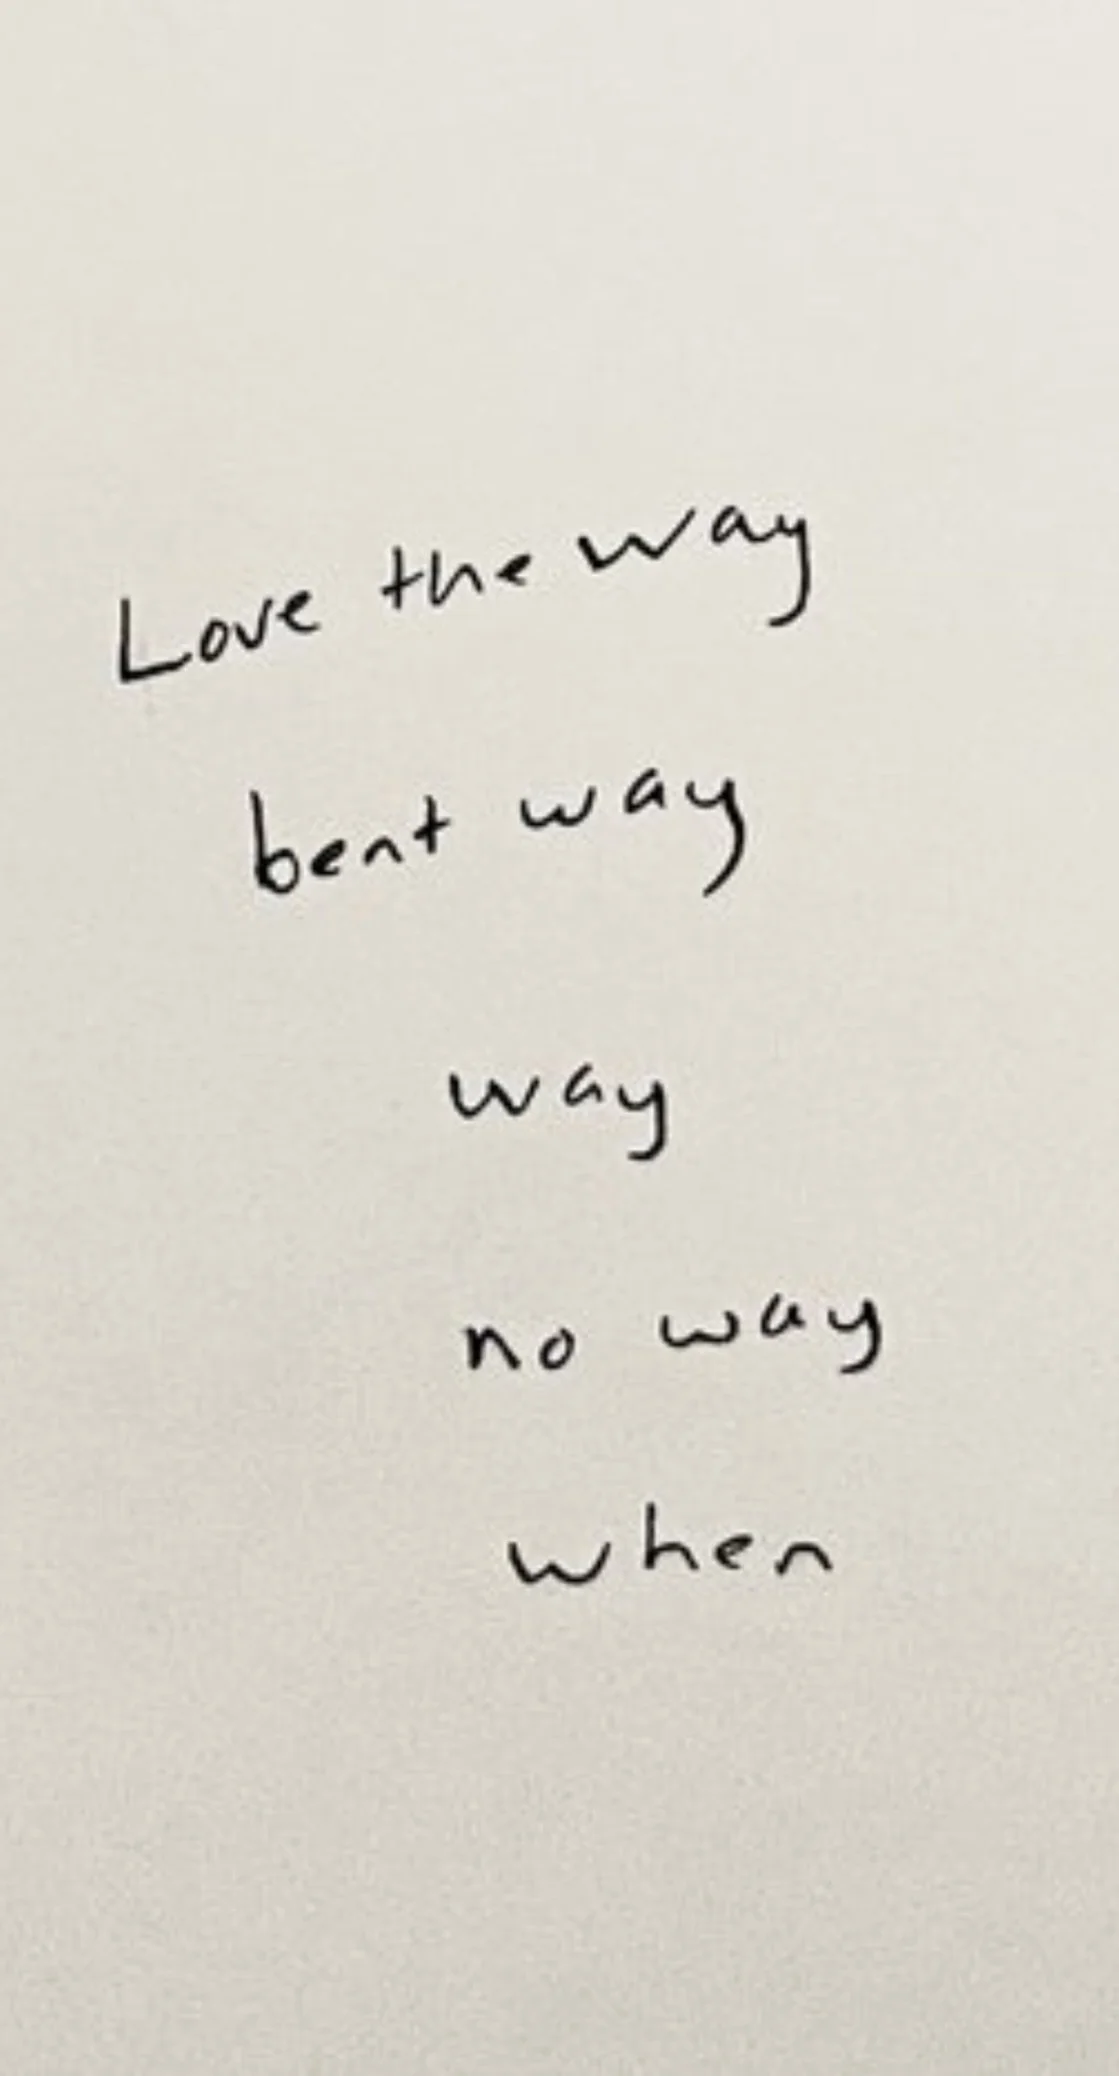 Love the way
bent way
way
no way
when